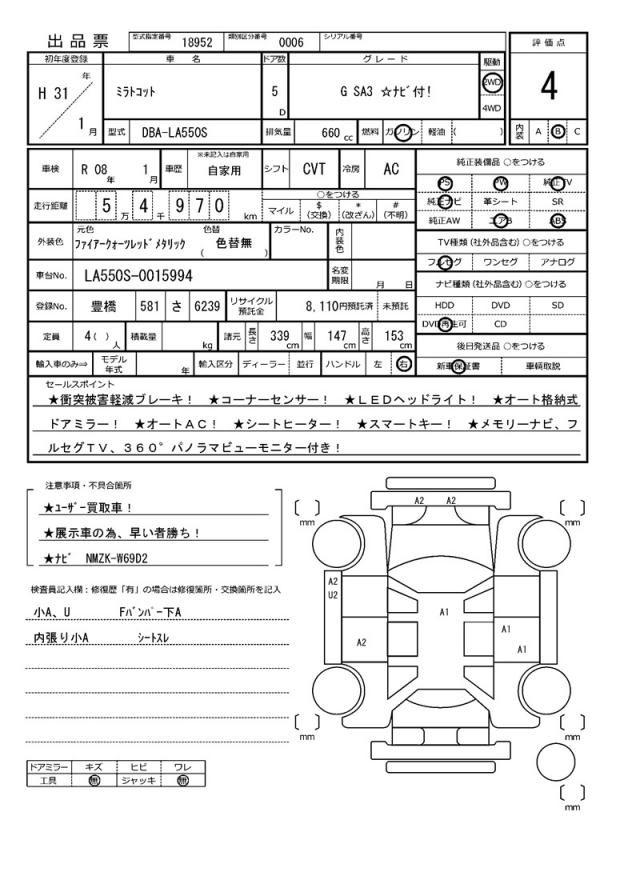 出品票 型式指定番号 18952 類別区分番号 0006 シリアル番号
評価点
4
初年度登録 車名 ドア数 グレード 駆動
H 31 年 1 月 ﾐﾗﾄｺｯﾄ 5 D G SA3 ☆ﾅﾋﾞ付! 2WD 4WD
型式 DBA-LA550S 排気量 660 cc 燃料 ガソリン 軽油 ( )
内装 A B C
車検 R 08 年 1 月 車歴 ※未記入は自家用 自家用 シフト CVT 冷房 AC
走行距離 5 万 4 千 9 7 0 km
○をつける
マイル $(交換) *(改ざん) #(不明)
外装色 元色 ﾌｧｲｱｰｸｫｰﾂﾚｯﾄﾞﾒﾀﾘｯｸ 色替 ( 色替無 ) カラーNo. 内装色
車台No. LA550S-0015994 名変期限 月 日
登録No. 豊橋 581 さ 6239 リサイクル預託金 8,110円預託済 未預託
定員 4( ) 人 積載量 kg 諸元 長さ 339 cm 幅 147 cm 高さ 153 cm
輸入車のみ⇒ モデル年式 年 輸入区分 ディーラー 並行 ハンドル 左 右
純正装備品 ○をつける
PS PW 純正TV
純正ナビ 革シート SR
純正AW エアB ABS
TV種類(社外品含む) ○をつける
フルセグ ワンセグ アナログ
ナビ種類(社外品含む) ○をつける
HDD DVD SD
DVD再生可 CD
後日発送品 ○をつける
新車保証書 車輌取説
セールスポイント
★衝突被害軽減ブレーキ！ ★コーナーセンサー！ ★ＬＥＤヘッドライト！ ★オート格納式
ドアミラー！ ★オートＡＣ！ ★シートヒーター！ ★スマートキー！ ★メモリーナビ、フ
ルセグＴＶ、３６０°パノラマビューモニター付き！
注意事項・不具合箇所
★ﾕｰｻﾞｰ買取車！
★展示車の為、早い者勝ち！
★ﾅﾋﾞ NMZK-W69D2
検査員記入欄：修復歴「有」の場合は修復箇所・交換箇所を記入
小A、U Fﾊﾞﾝﾊﾟｰ下A
内張り小A ｼｰﾄｽﾚ
ドアミラー キズ ヒビ ワレ
工具 無 ジャッキ 無
A2 A2
[ ] mm [ ] mm
A2
U2
A1
A2
A1
A1
[ ] mm [ ] mm
[ ] mm